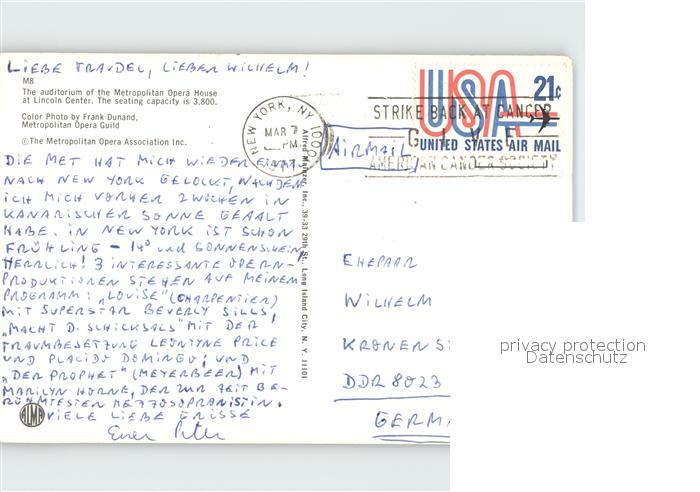 LIEBE TRAUDEL, LIEBER WILHELM!
M8
The auditorium of the Metropolitan Opera House
at Lincoln Center. The seating capacity is 3,800.
Color Photo by Frank Dunand,
Metropolitan Opera Guild
©The Metropolitan Opera Association Inc.
DIE MET HAT MICH WIEDER EINMAL
NACH NEW YORK GELOCKT, NACHDEM
ICH MICH VORHER 2 WOCHEN IN
KANARISCHER SONNE GEAALT
HABE. IN NEW YORK IST SCHON
FRÜHLING – 14° UND SONNENSCHEIN,
HERRLICH! 3 INTERESSANTE OPERN-
PRODUKTIONEN STEHEN AUF MEINEM
PROGRAMM: „LOUISE" (CHARPENTIER)
MIT SUPERSTAR BEVERLY SILLS,
„MACHT D. SCHICKSALS" MIT DER
TRAUMBESETZUNG LEONTYNE PRICE
UND PLACIDO DOMINGO; UND
„DER PROPHET" (MEYERBEER) MIT
MARILYN HORNE, DER ZUR ZEIT BE-
RÜHMTESTEN MEZZOSOPRANISTIN.
VIELE LIEBE GRÜSSE
Euer Peter
ALMA
Alfred Mainzer, Inc., 39-33 29th St., Long Island City, N. Y. 11101
NEW YORK, NY 1000
MAR 7
PM
1977
USA 21c
UNITED STATES AIR MAIL
STRIKE BACK AT CANCER
GIVE
AMERICAN CANCER SOCIETY
AIRMAIL
EHEPAAR
WILHELM
KRONENST
DDR 8023
GERMA
privacy protection
Datenschutz